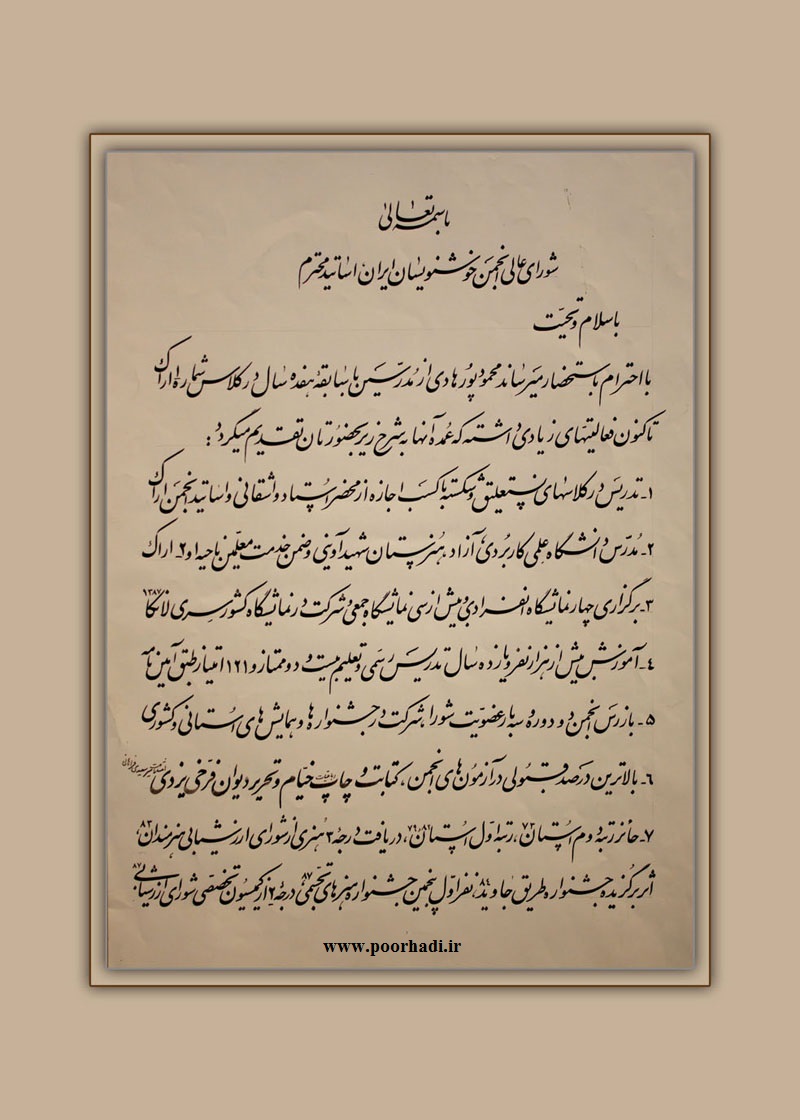 باسمه تعالی
شورای عالی انجمن خوشنویسان ایران، اساتید محترم
باسلام و تحیت
با احترام باستحضار میرساند محمود پورهادی از مدرسین با سابقهٔ هفده سال در کلاس شماره ۱ اراک
تاکنون فعالیتهای زیادی داشته که عمده آنها به شرح زیر بحضورتان تقدیم میگردد :
۱- تدریس در کلاسهای نستعلیق و شکسته با کسب اجازه از محضر استاد واشقانی و اساتید انجمن اراک
۲- مدرس دانشگاه علمی کاربردی، آزاد، هنرستان شهید آوینی و ضمن خدمت معلمین ناحیه ۱و۲ اراک
۳- برگزاری چهار نمایشگاه انفرادی و بیش از سی نمایشگاه جمعی و شرکت در نمایشگاه کشور سری لانکا ۱۳۸۷
۴- آموزش بیش از هزار نفر و یازده سال تدریس رسمی و تعلیم بیست و دو ممتاز و ۱۲۱ امتیاز طبق آیین نامه
۵- بازرس انجمن دو دوره و سه بار عضویت شورا، شرکت در جشنواره ها و همایش های استانی و کشوری
۶- بالاترین درصد قبولی در آزمون های انجمن، کتابت و چاپ خیام و تحریر دیوان فرخی یزدی
۷- حائز رتبه دوم استان ۷۳، رتبه اول استان، دریافت درجه ۳ هنری از شورای ارزشیابی هنرمندان ۸۳،
اثر برگزیده جشنواره طریق جاوید، نفر اول پنجمین جشنواره هنرهای تجسمی ۸۷ درجهٔ ۲ از کمیسیون تخصصی شورای ارزشیابی ۸۷
www.poorhadi.ir